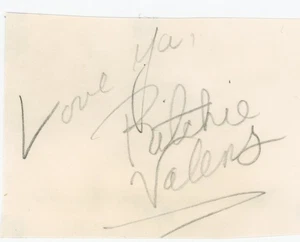 Love Ya,
Ritchie
Valens